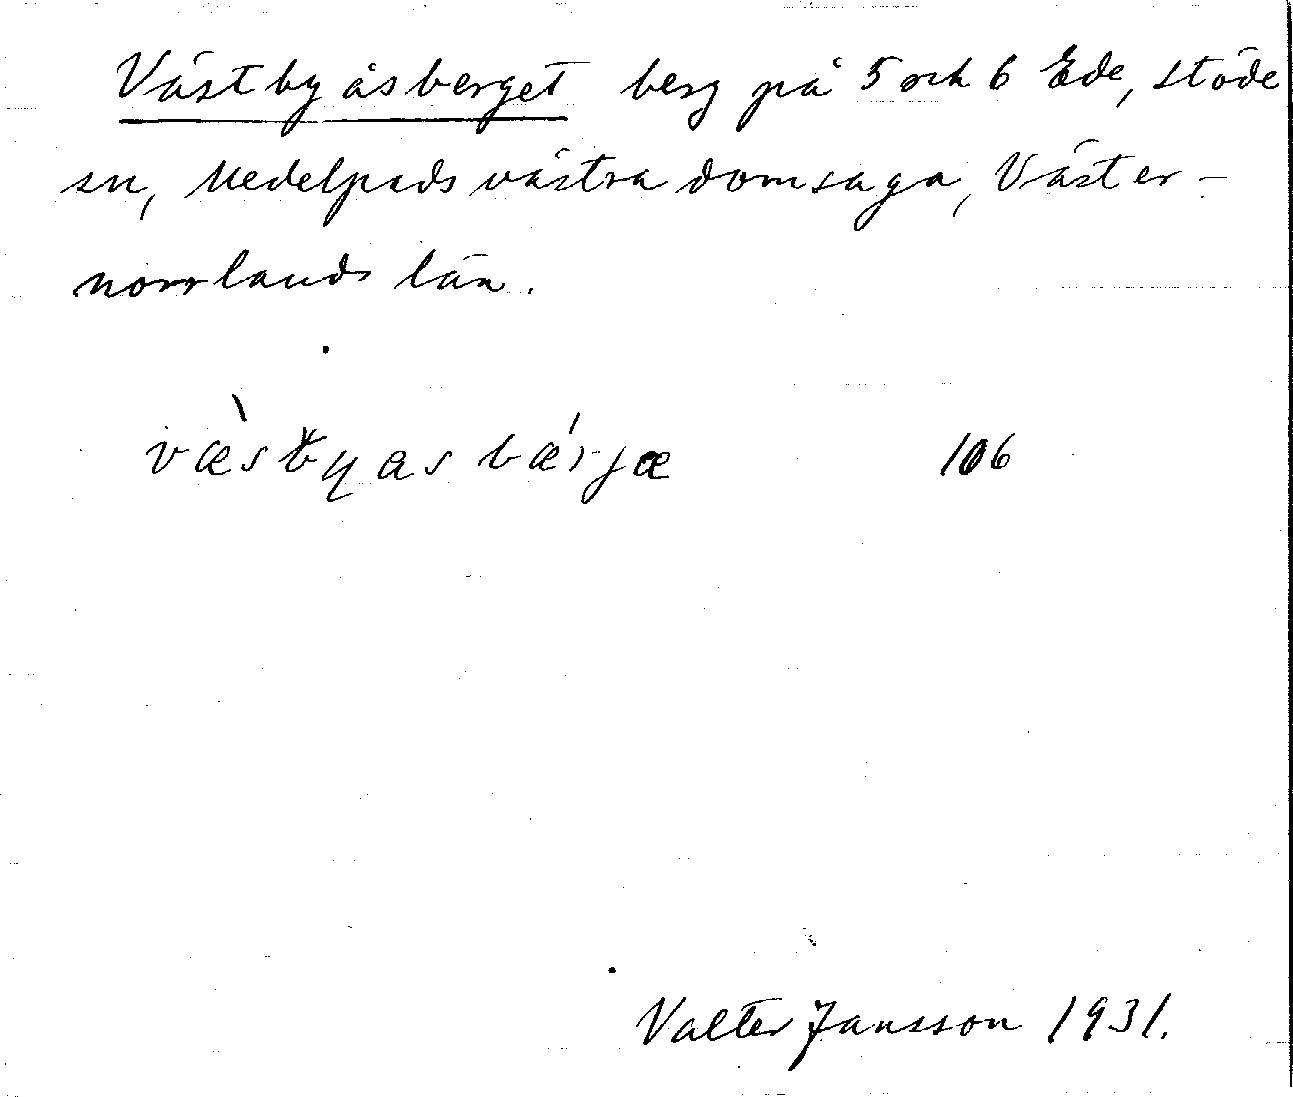 Västbyåsberget berg på 5 och 6 Ede, Stöde
sn, Medelpads västra domsaga, Väster-
norrlands län.
væ̀sbyasbærjæ 106
Valter Jansson 1931.